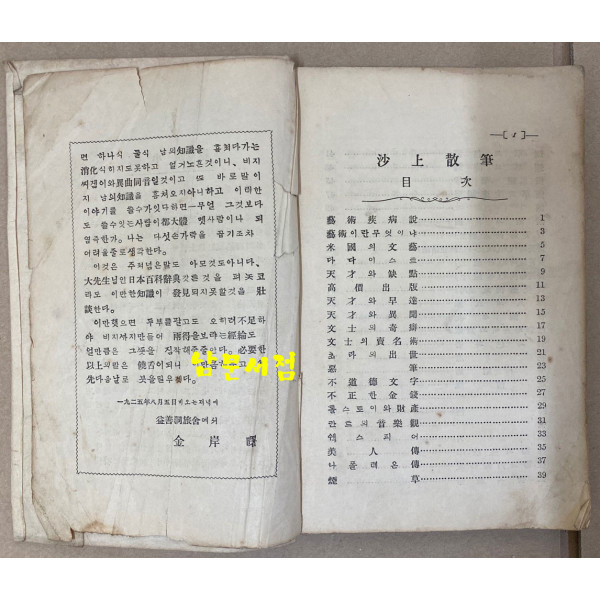 면 하나식 둘식 남의知識을 훔처다가는
消化식히지도못하고 얼거노흔것이니、비지
지 남의知識을 훔처오지아니하고 이러한
이야기를 들수가잇다하면—무얼 그것보다
도 들수잇는사람이都大體 몃사람이나 되
열즉한가。나는 다섯손가락을 꼽기조차
어려울줄로생각한다。
이것은 주저넘은말도 아모것도아니다、
大先生님인日本百科辭典갓흔것을 펴놋코
라도 이만한知識이 發見되지못할것을 壯
談한다。
이만햇으면 두부를팔고도 오히려不足하
야 비지까지만들어 兩得을보라는經綸도
얼만큼은 그뜻을 짐작해준줄안다。必要한
以上의말은 饒舌이되니
先다음날로 붓을밀우겟다。
남문서점
一九二五年八月五日비오는저녁에
益善洞旅舍에서
金岸曙
—[1]—
沙上散筆
目次
藝術疾病說 1
藝術이란무엇이냐 3
米國의文藝 5
다다이스트 7
天才와缺點 9
高價出版 11
天才와早達 13
天才와異聞 15
文士의奇癖 17
文士의賣名術 19
조라의出世 21
惡筆 23
不道德文字 25
不正한金錢 27
톨스토이와財產 29
칸트의音樂觀 31
섹스피어 33
美人傳 35
나폴레온傳 37
煙草 39